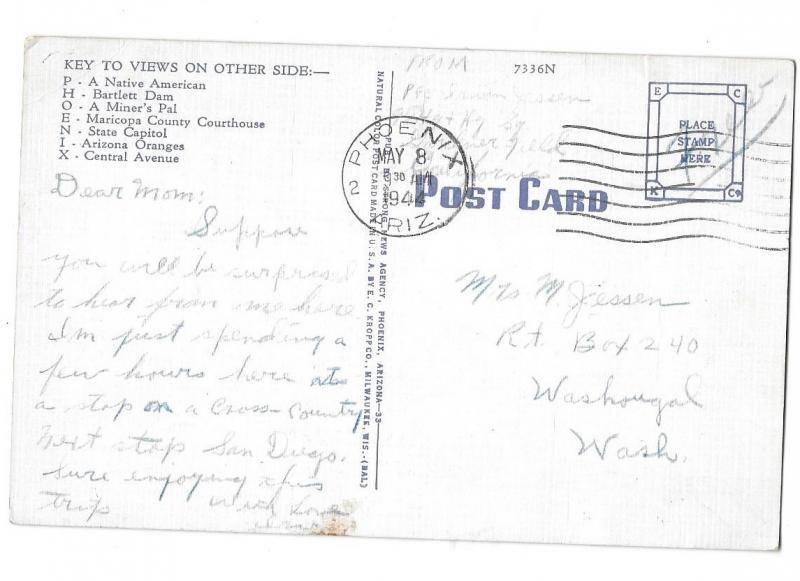 KEY TO VIEWS ON OTHER SIDE:—
P - A Native American
H - Bartlett Dam
O - A Miner's Pal
E - Maricopa County Courthouse
N - State Capitol
I - Arizona Oranges
X - Central Avenue
Dear Mom:
Suppose
you will be surprised
to hear from me here
I'm just spending a
few hours here
a stop on a Cross-Country
next stop San Diego.
Sure enjoying this
trip With Love
NATURAL COLOR POST CARD MADE IN U. S. A. BY E. C. KROPP CO., MILWAUKEE, WIS.-(BAL)
NEWS AGENCY, PHOENIX, ARIZONA—33
FROM
Pfc Jessen
Field
California
7336N
PHOENIX
MAY 8
30 AM
1944
2
ARIZ.
POST CARD
E C
PLACE
STAMP
HERE
K Co
Free
Mrs M. Jessen
Rt. Box 240
Washougal
Wash.